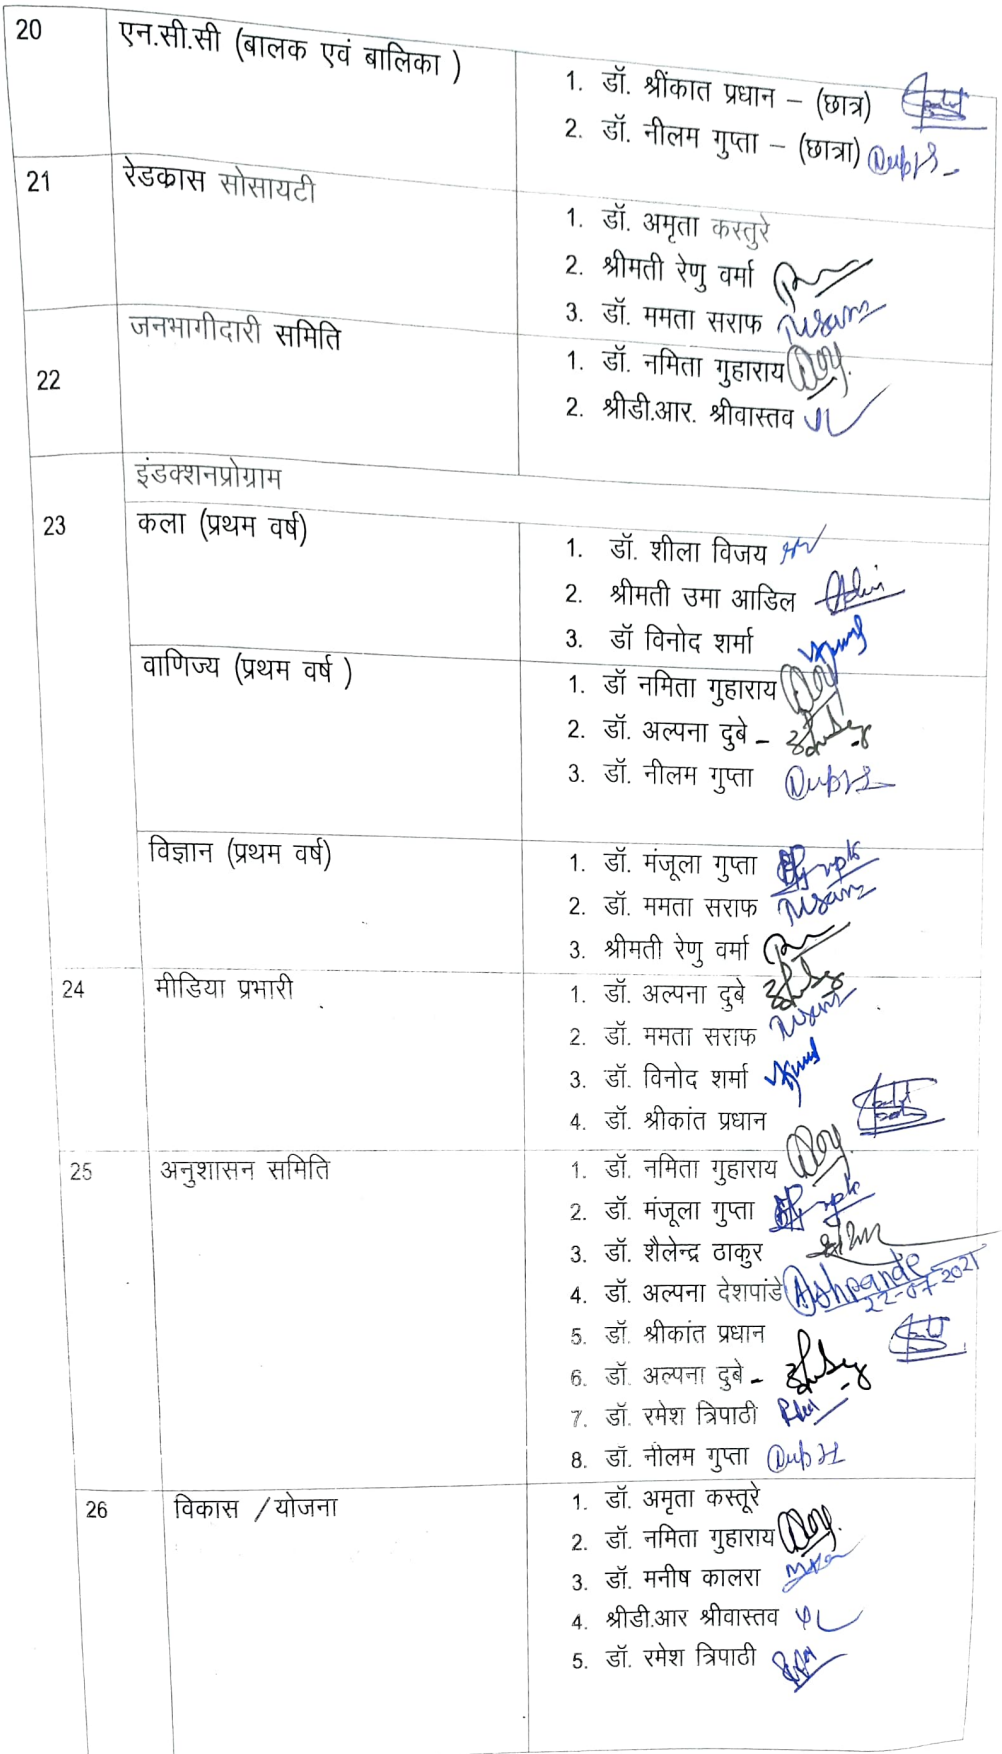 20 एन.सी.सी (बालक एवं बालिका )
1. डॉ. श्रींकात प्रधान – (छात्र)
2. डॉ. नीलम गुप्ता – (छात्रा)
21 रेडक्रास सोसायटी
1. डॉ. अमृता कस्तुरे
2. श्रीमती रेणु वर्मा
3. डॉ. ममता सराफ
22 जनभागीदारी समिति
1. डॉ. नमिता गुहाराय
2. श्रीडी.आर. श्रीवास्तव
इंडक्शनप्रोग्राम
23 कला (प्रथम वर्ष)
1. डॉ. शीला विजय
2. श्रीमती उमा आडिल
3. डॉ विनोद शर्मा
वाणिज्य (प्रथम वर्ष )
1. डॉ नमिता गुहाराय
2. डॉ. अल्पना दुबे –
3. डॉ. नीलम गुप्ता
विज्ञान (प्रथम वर्ष)
1. डॉ. मंजूला गुप्ता
2. डॉ. ममता सराफ
3. श्रीमती रेणु वर्मा
24 मीडिया प्रभारी
1. डॉ. अल्पना दुबे
2. डॉ. ममता सराफ
3. डॉ. विनोद शर्मा
4. डॉ. श्रीकांत प्रधान
25 अनुशासन समिति
1. डॉ. नमिता गुहाराय
2. डॉ. मंजूला गुप्ता
3. डॉ. शैलेन्द्र ठाकुर
4. डॉ. अल्पना देशपांडे Ashpande
22-07-2021
5. डॉ. श्रीकांत प्रधान
6. डॉ. अल्पना दुबे –
7. डॉ. रमेश त्रिपाठी
8. डॉ. नीलम गुप्ता
26 विकास / योजना
1. डॉ. अमृता कस्तूरे
2. डॉ. नमिता गुहाराय
3. डॉ. मनीष कालरा
4. श्रीडी.आर श्रीवास्तव
5. डॉ. रमेश त्रिपाठी